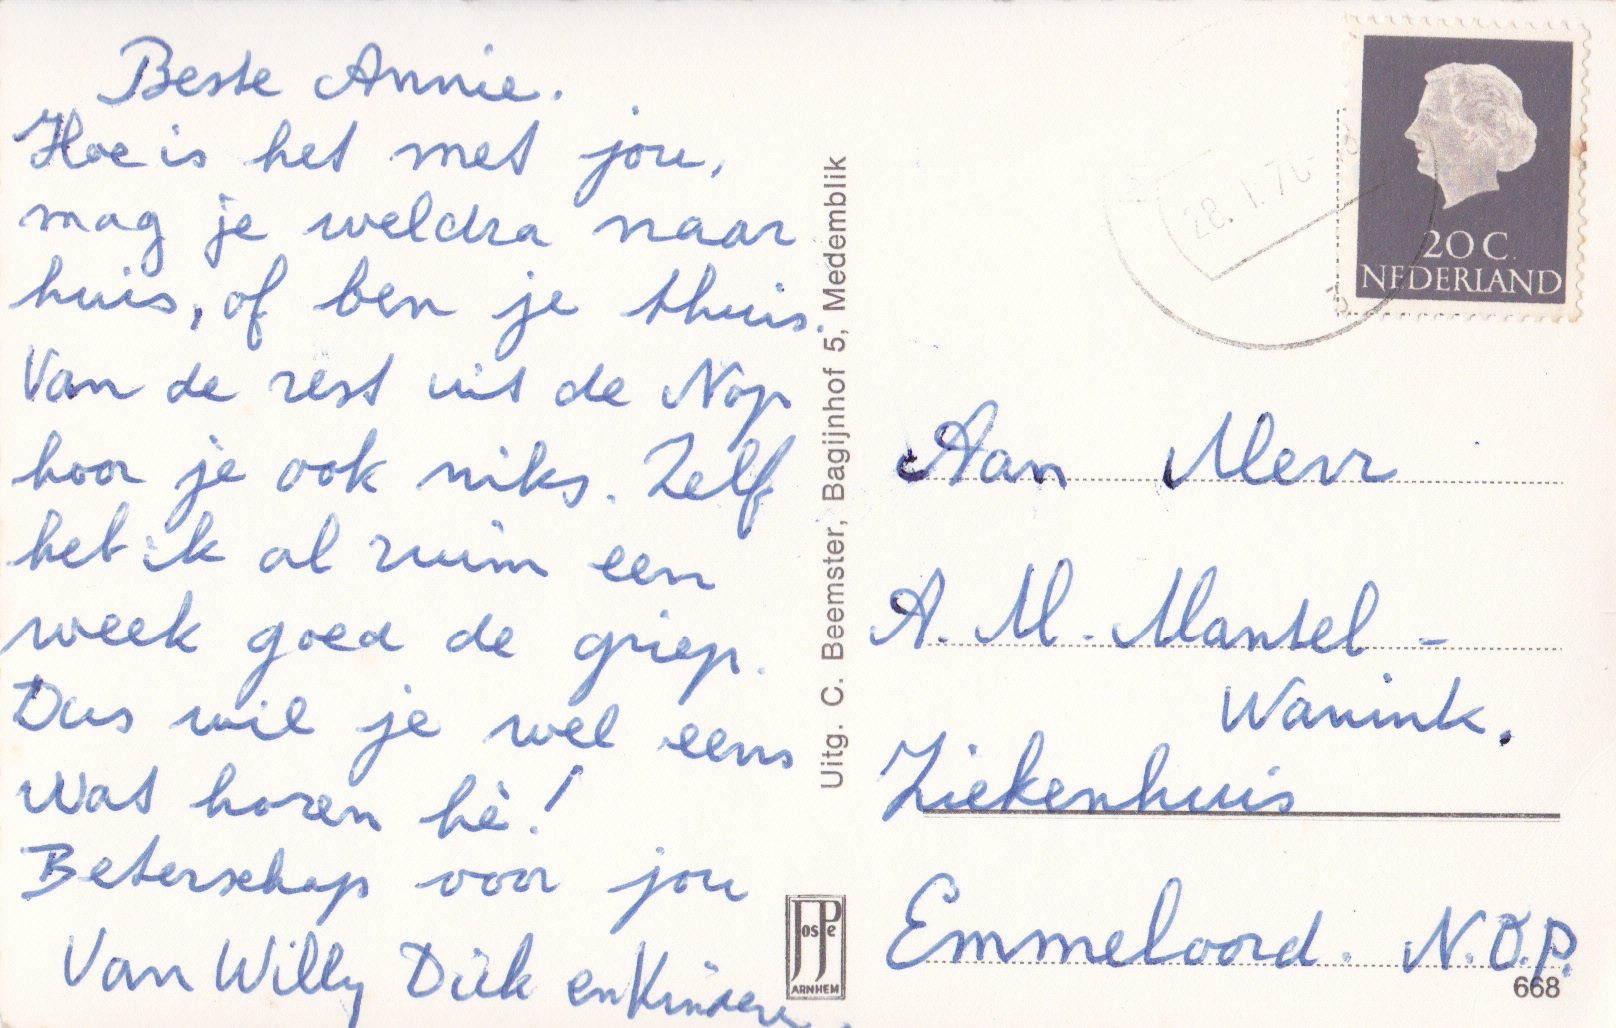 Beste Annie.
Hoe is het met jou,
mag je weldra naar
huis, of ben je thuis.
Van de rest uit de Nop
hoor je ook niks. Zelf
heb ik al ruim een
week goed de griep.
Dus wil je wel eens
wat horen hè!
Beterschap voor jou
Van Willy Dick en Kinderen.
Uitg. C. Beemster, Bagijnhof 5, Medemblik
JosPe
ARNHEM
28.1.70
20 C
NEDERLAND
Aan Mevr
A. M. Mantel -
Wanink.
Ziekenhuis
Emmeloord. N.O.P.
668